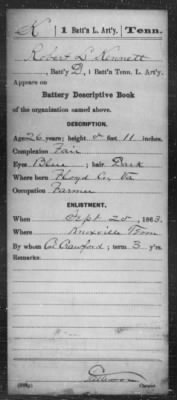 K | 1 Batt'n L. Art'y. | Tenn.
Robert L. Kennett
, Batt'y D, 1 Batt'n Tenn. L. Art'y.
Appears on
Battery Descriptive Book
of the organization named above.
DESCRIPTION.
Age 26 years; height 5 feet 11 inches.
Complexion Fair
Eyes Blue; hair Dark
Where born Floyd Co, Va
Occupation Farmer
ENLISTMENT.
When Sept 25, 1863.
Where Knoxville Tenn
By whom Crawford; term 3 y'rs.
Remarks:
Copyist.